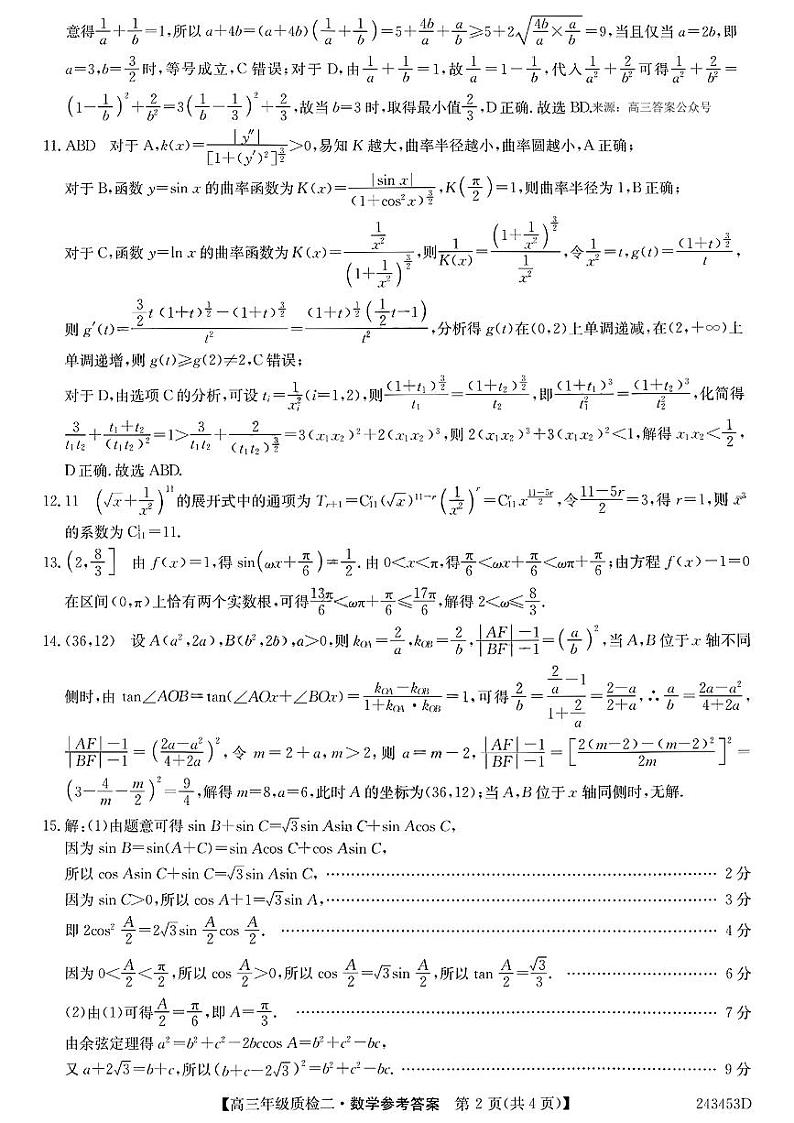 意得1/a+1/b=1,所以a+4b=(a+4b)(1/a+1/b)=5+4b/a+a/b≥5+2√(4b/a×a/b)=9,当且仅当a=2b,即
a=3,b=3/2时,等号成立,C错误;对于D,由1/a+1/b=1,故1/a=1-1/b,代入1/a²+2/b²可得1/a²+2/b²=
(1-1/b)²+2/b²=3(1/b-1/3)²+2/3,故当b=3时,取得最小值2/3,D正确.故选BD.来源：高三答案公众号
11.ABD 对于A,k(x)=|y″|/[1+(y′)²]^(3/2)>0,易知K越大,曲率半径越小,曲率圆越小,A正确;
对于B,函数y=sin x的曲率函数为K(x)=|sin x|/(1+cos²x)^(3/2),K(π/2)=1,则曲率半径为1,B正确;
对于C,函数y=ln x的曲率函数为K(x)=(1/x²)/(1+1/x²)^(3/2),则1/K(x)=(1+1/x²)^(3/2)/(1/x²),令1/x²=t,g(t)=(1+t)^(3/2)/t,
则g′(t)=(3/2 t(1+t)^(1/2)-(1+t)^(3/2))/t²=(1+t)^(1/2)(1/2 t-1)/t²,分析得g(t)在(0,2)上单调递减,在(2,+∞)上
单调递增,则g(t)≥g(2)≠2,C错误;
对于D,由选项C的分析,可设tᵢ=1/xᵢ²(i=1,2),则(1+t₁)^(3/2)/t₁=(1+t₂)^(3/2)/t₂,即(1+t₁)³/t₁²=(1+t₂)³/t₂²,化简得
3/(t₁t₂)+(t₁+t₂)/(t₁t₂)²=1>3/(t₁t₂)+2/(t₁t₂)^(3/2)=3(x₁x₂)²+2(x₁x₂)³,则2(x₁x₂)³+3(x₁x₂)²<1,解得x₁x₂<1/2,
D正确.故选ABD.
12.11 (√x+1/x²)¹¹的展开式中的通项为Tᵣ₊₁=C₁₁ʳ(√x)¹¹⁻ʳ(1/x²)ʳ=C₁₁ʳx^((11-5r)/2),令(11-5r)/2=3,得r=1,则x³
的系数为C₁₁¹=11.
13.(2,8/3] 由f(x)=1,得sin(ωx+π/6)=1/2.由0<x<π,得π/6<ωx+π/6<ωπ+π/6;由方程f(x)-1=0
在区间(0,π)上恰有两个实数根,可得13π/6<ωπ+π/6≤17π/6,解得2<ω≤8/3.
14.(36,12) 设A(a²,2a),B(b²,2b),a>0,则k_OA=2/a,k_OB=2/b,(|AF|-1)/(|BF|-1)=(a/b)²,当A,B位于x轴不同
侧时,由tan∠AOB=tan(∠AOx+∠BOx)=(k_OA-k_OB)/(1+k_OA·k_OB)=1,可得2/b=(2/a-1)/(1+2/a)=(2-a)/(2+a),∴a/b=(2a-a²)/(4+2a),
(|AF|-1)/(|BF|-1)=((2a-a²)/(4+2a))²,令m=2+a,m>2,则a=m-2,(|AF|-1)/(|BF|-1)=[(2(m-2)-(m-2)²)/2m]²=
(3-4/m-m/2)²=9/4,解得m=8,a=6,此时A的坐标为(36,12);当A,B位于x轴同侧时,无解.
15.解:(1)由题意可得sin B+sin C=√3sin Asin C+sin Acos C,
因为sin B=sin(A+C)=sin Acos C+cos Asin C,
所以cos Asin C+sin C=√3sin Asin C, …… 2分
因为sin C>0,所以cos A+1=√3sin A, …… 3分
即2cos² A/2=2√3sin A/2 cos A/2. …… 4分
因为0<A/2<π/2,所以cos A/2>0,所以cos A/2=√3sin A/2,所以tan A/2=√3/3. …… 6分
(2)由(1)可得A/2=π/6,即A=π/3. …… 7分
由余弦定理得a²=b²+c²-2bccos A=b²+c²-bc,
又a+2√3=b+c,所以(b+c-2√3)²=b²+c²-bc. …… 9分
【高三年级质检二·数学参考答案 第2页(共4页)】 243453D